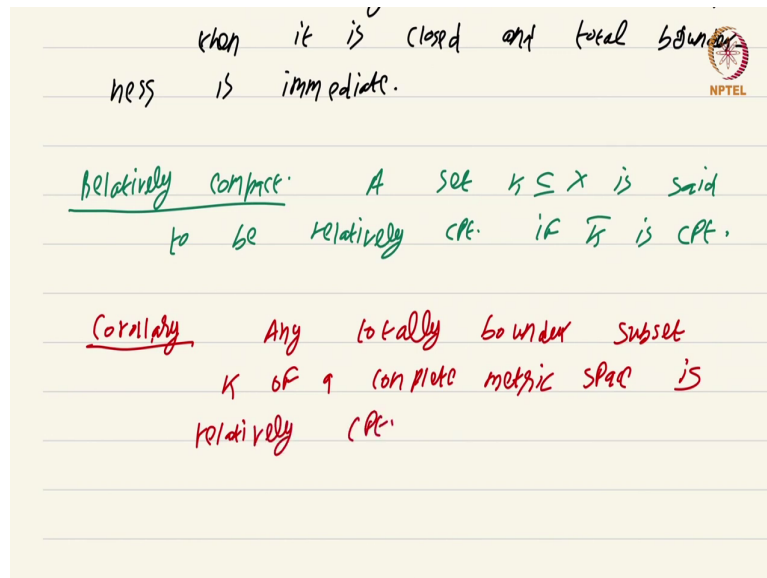 then it is closed and total bounded
ness is immediate.
NPTEL
Relatively compact. A set K ⊆ X is said
to be relatively cpt. if K̅ is cpt.
Corollary Any totally bounded subset
K of a complete metric space is
relatively cpt.